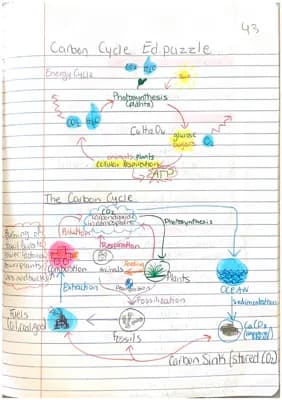 43
Carbon Cycle Ed.puzzle
Energy Cycle
CO2 H2O
Sun
Photosynthesis
(plants)
CO2 H2O
C6H12O6
glucose
sugars
O2
animals, plants
Cellular Respiration
ATP
The Carbon Cycle
CO2
carbon dioxide
in atmosphere
Photosynthesis
Burning of
fossil fuels to
power factories,
power plants,
cars and trucks
Pollution
Respiration
Combustion
animals
Feeding
Plants
OCEAN
Extraction
Fossilization
Sedimentation
Fuels
(oil, coal, gas)
Fossils
CaCO3
Carbon Sink (stored CO2)